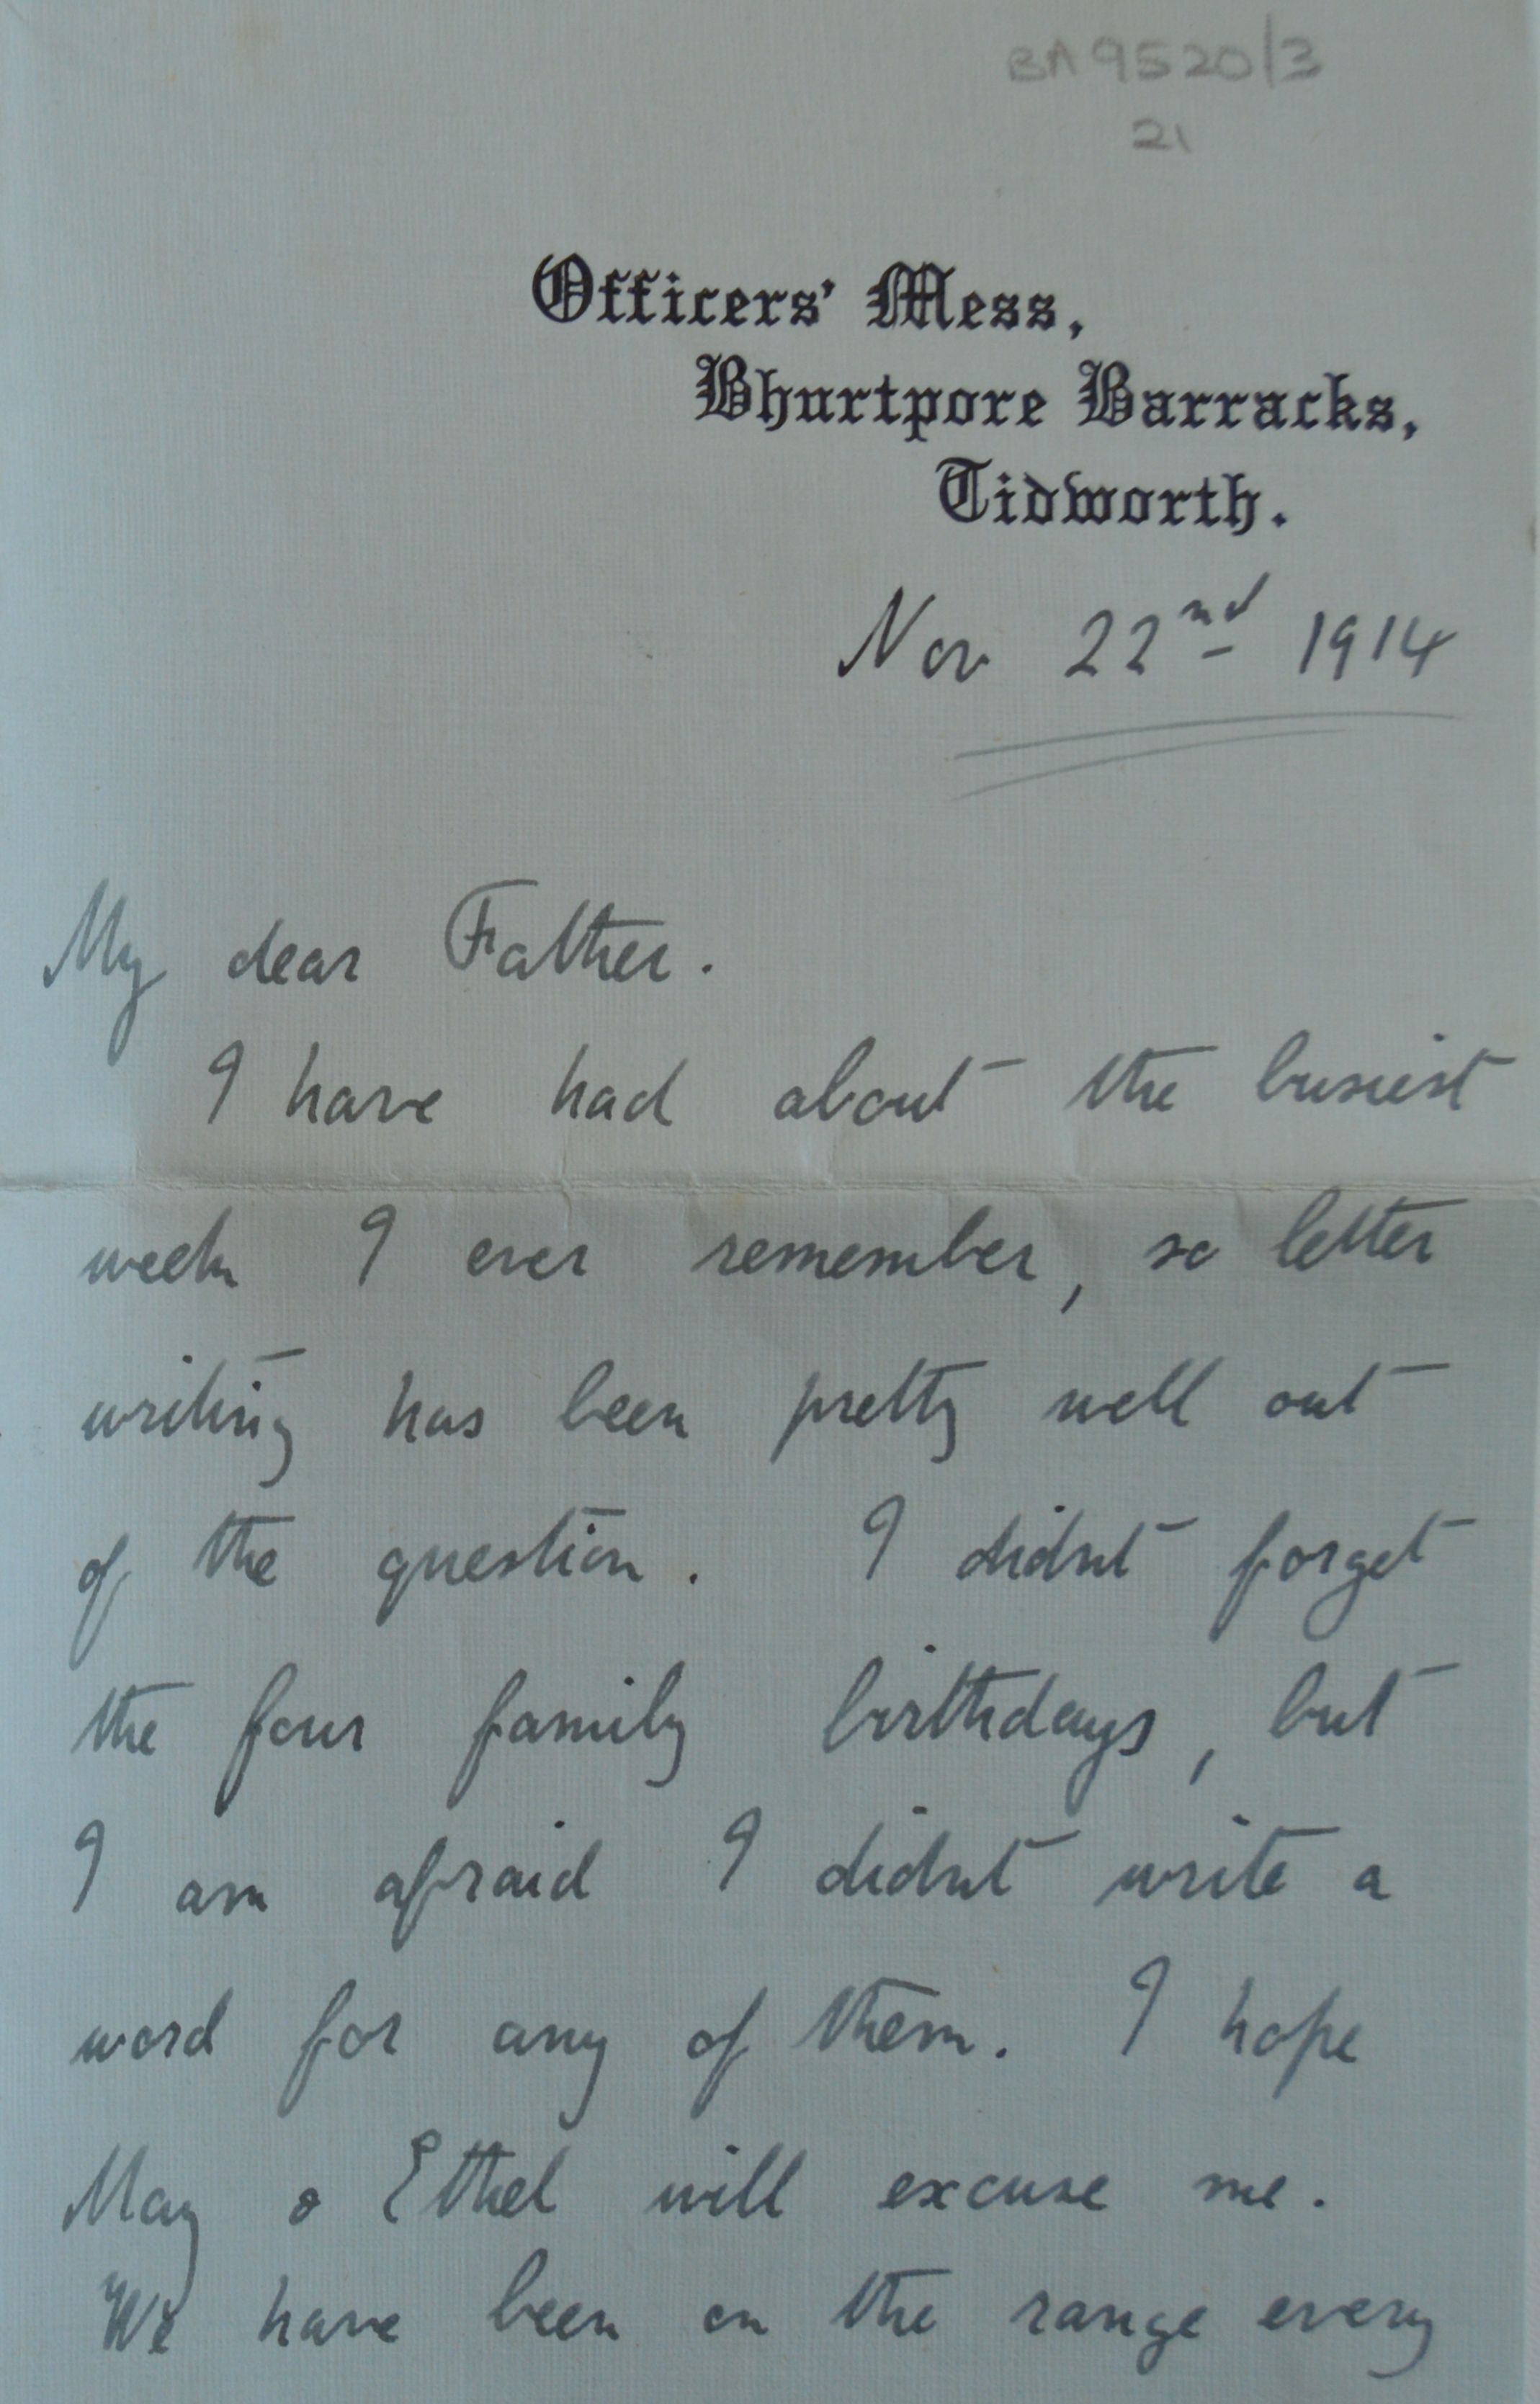 BA 9520/3
21
Officers' Mess,
Bhurtpore Barracks,
Tidworth.
Nov 22nd 1914
My dear Father.
I have had about the busiest
week I ever remember, so letter
writing has been pretty well out
of the question. I didnt forget
the four family birthdays, but
I am afraid I didnt write a
word for any of them. I hope
May & Ethel will excuse me.
We have been on the range every